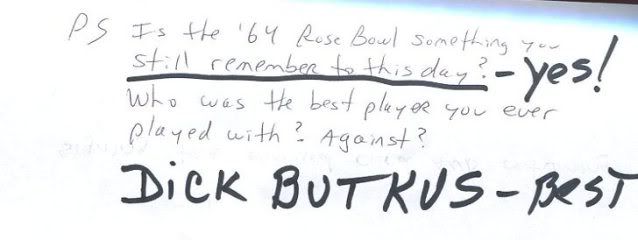 PS Is the '64 Rose Bowl something you
still remember to this day? - yes!
Who was the best player you ever
played with? Against?
DICK BUTKUS - BEST